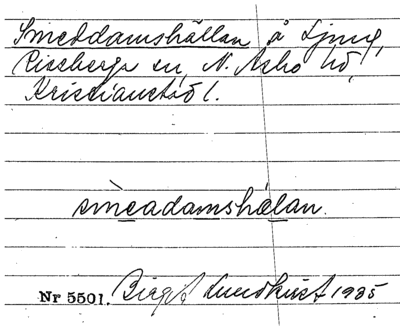 Smeddamshällan å Ljung,
Riseberga sn, N. Åsbo hd,
Kristianstad l.
smèadamshálan.
Nr 5501. Birgit Lundkvist 1935